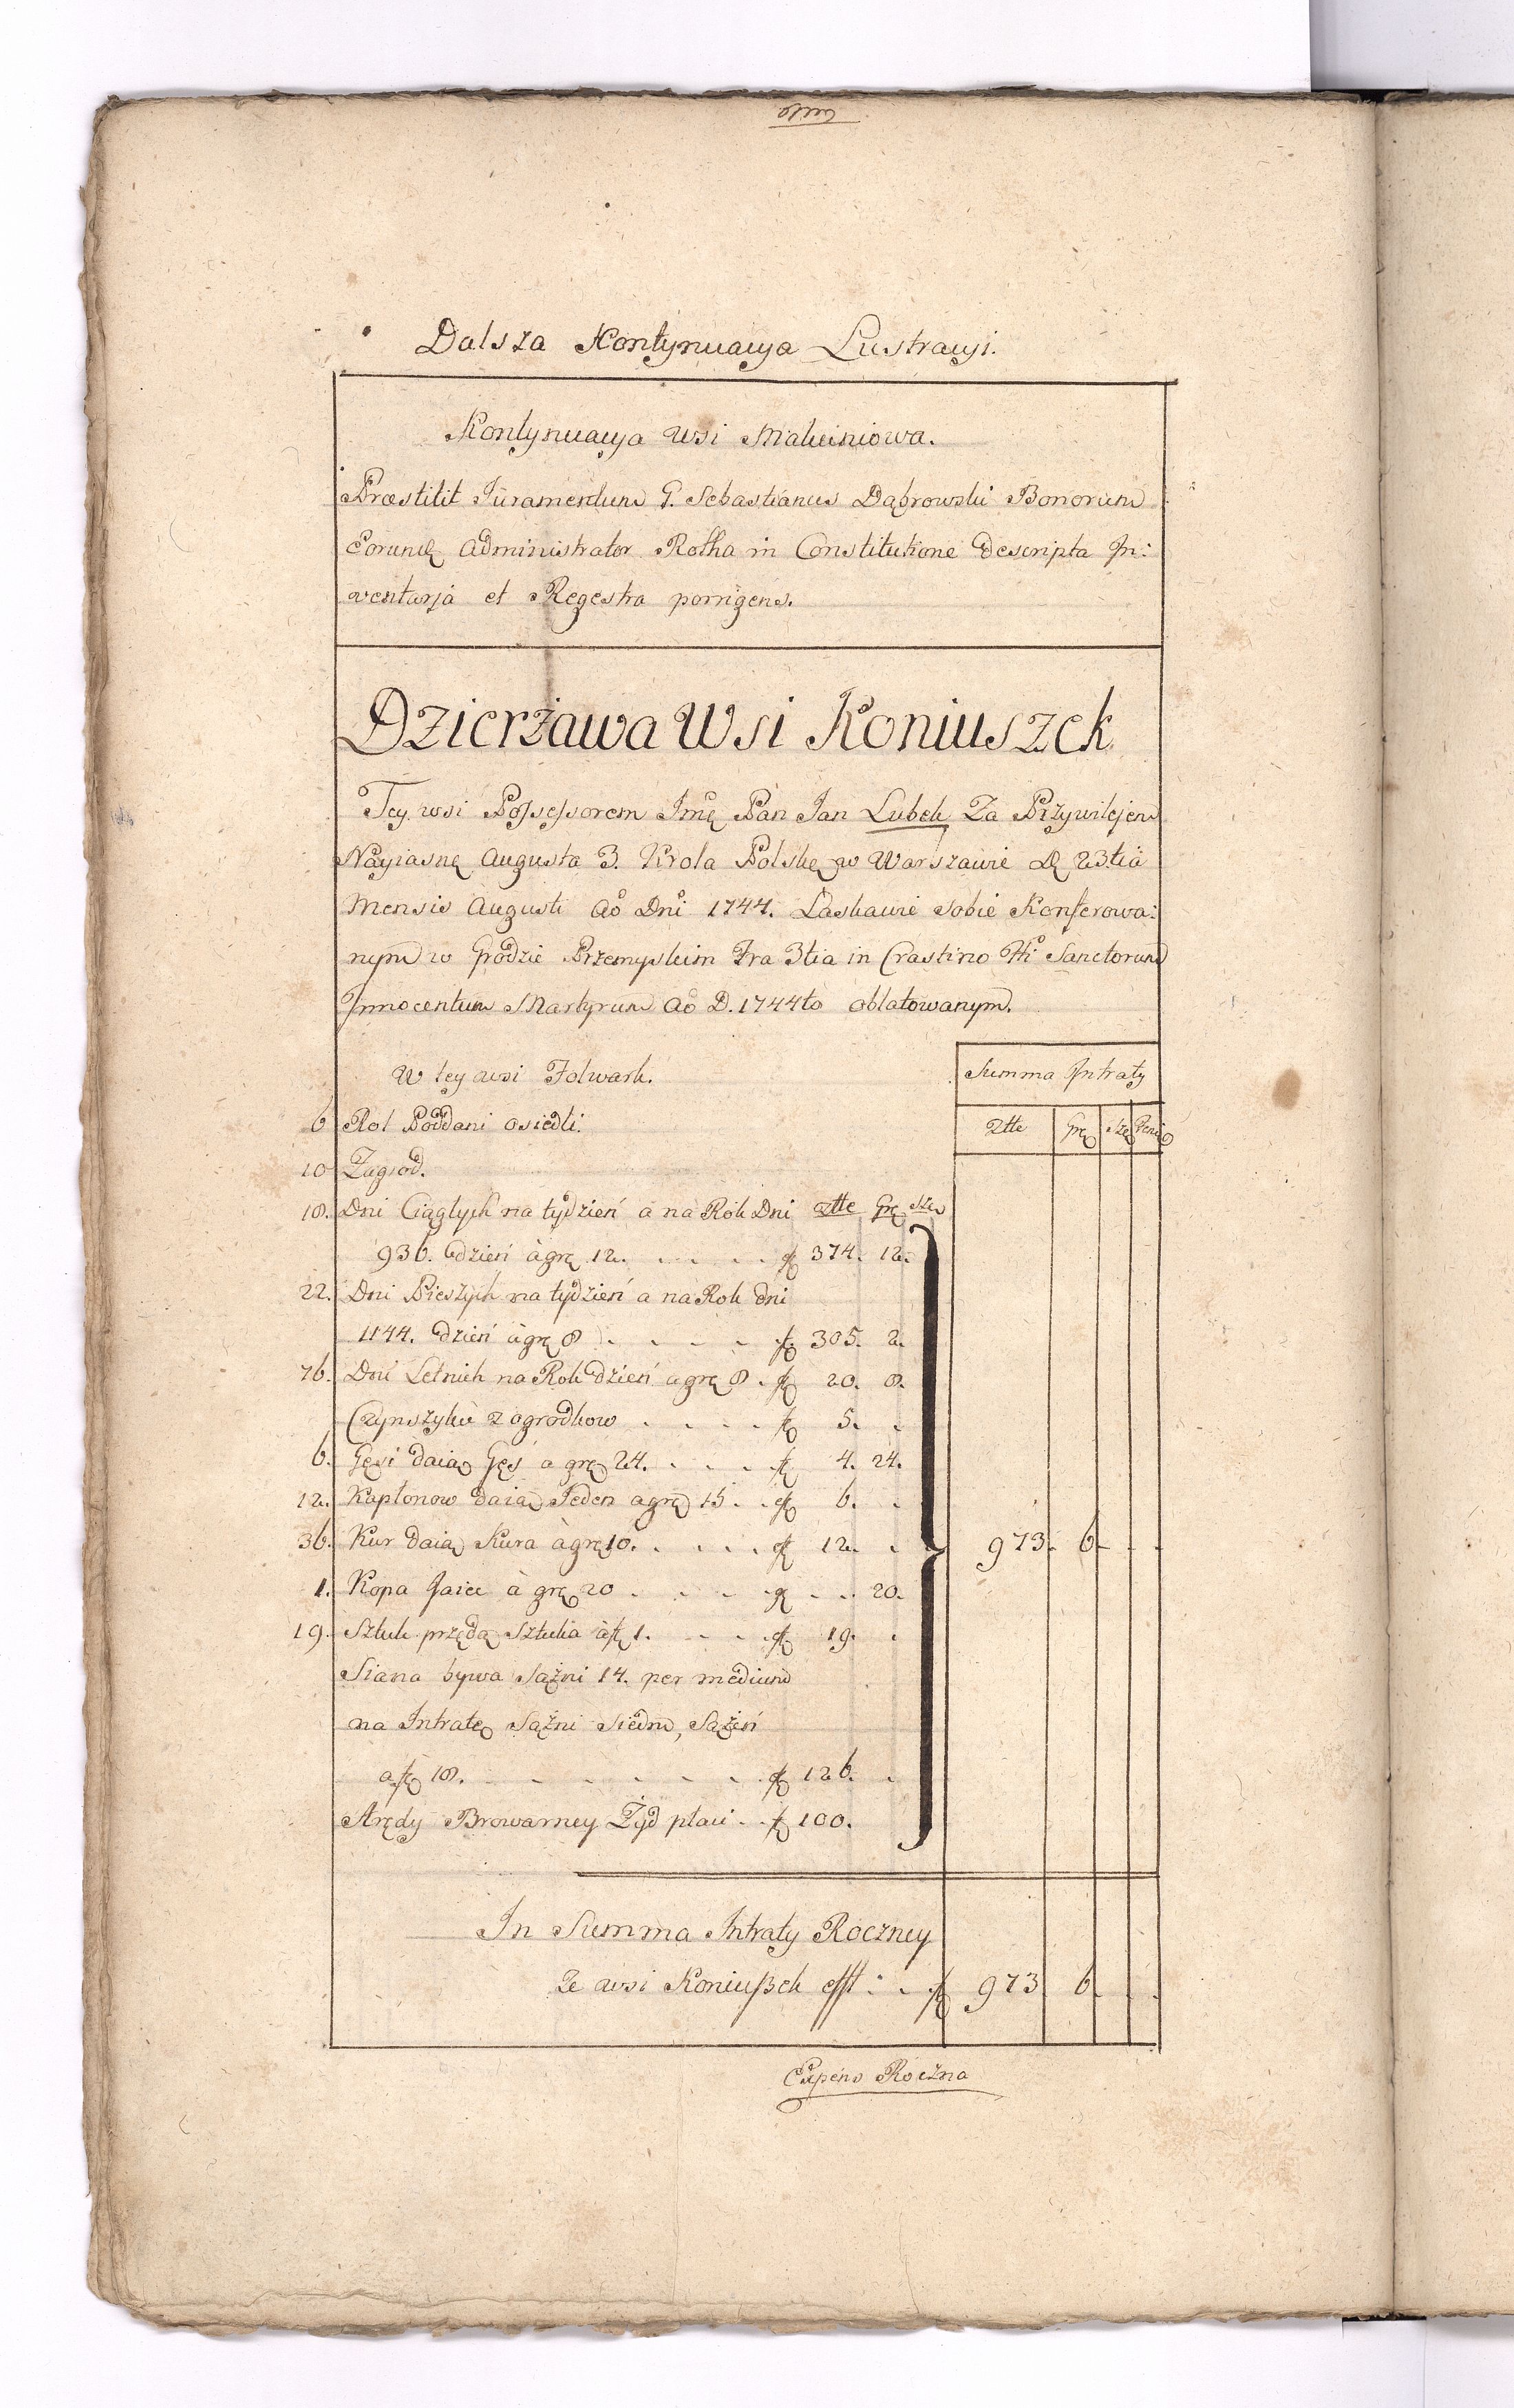 Dalsza Kontynuacya Lustracyi.
Kontynuacya Wsi Malwiniowa.
Præstitit Juramentum G. Sebastianus Dąbrowski Bonorum
Eorundę Administrator Rotha in Constitutione descripta In:
ventarja et Regestra porrigens.
Dzierżawa Wsi Koniuszek
Tey wsi Possessorem Jmę Pan Jan Lubek Za Przywilejem
Nayiasnę Augusta 3. Krola Polskę w Warszawie Dę 23tia
Mensis Augusti Aõ Dni 1744. Łaskawie sobie Konferowa:
nym w Grodzie Przemyskim Fra 3tia in Crastino Fti Sanctorum
Innocentum Martyrum Aõ D. 1744to oblatowanym.
W tey wsi Folwark. Summa Intraty
6 Rol Poddani osiedli. Ztte Grę Sze Peni
10 Zagrod.
18. Dni Ciągłych na tydzień a na Rok Dni Ztte Grę Sze
936. dzień à grę 12. . . . . f 374. 12.
22. Dni Pieszych na tydzień a na Rok dni
1144. dzień à grę 8 . . . . f 305. 2.
76. Dni Letnich na Rok dzień a grę 8 . f 20. 8.
Czynszyku z ogrodkow . . . . f 5. .
6. Gęsi daią Gęś a grę 24. . . . f 4. 24.
12. Kapłonow daią Jeden a grę 15 . . f 6. .
36. Kur daią Kura à grę 10. . . . . f 12. . 973. 6. . .
1. Kopa Jaiec à grę 20 . . . . g . . 20.
19. Sztuk przędą Sztuka à f 1. . . . f 19. .
Siana bywa Sążni 14. per medium
na Intratę Sążni Siedm, Sążeń
a f 18. . . . . . . f 126. .
Arędy Browarney Żyd płaci . . f 100.
In Summa Intraty Roczney
ze wsi Koniuszek efft: . . f 973 6. . .
Expens Roczna